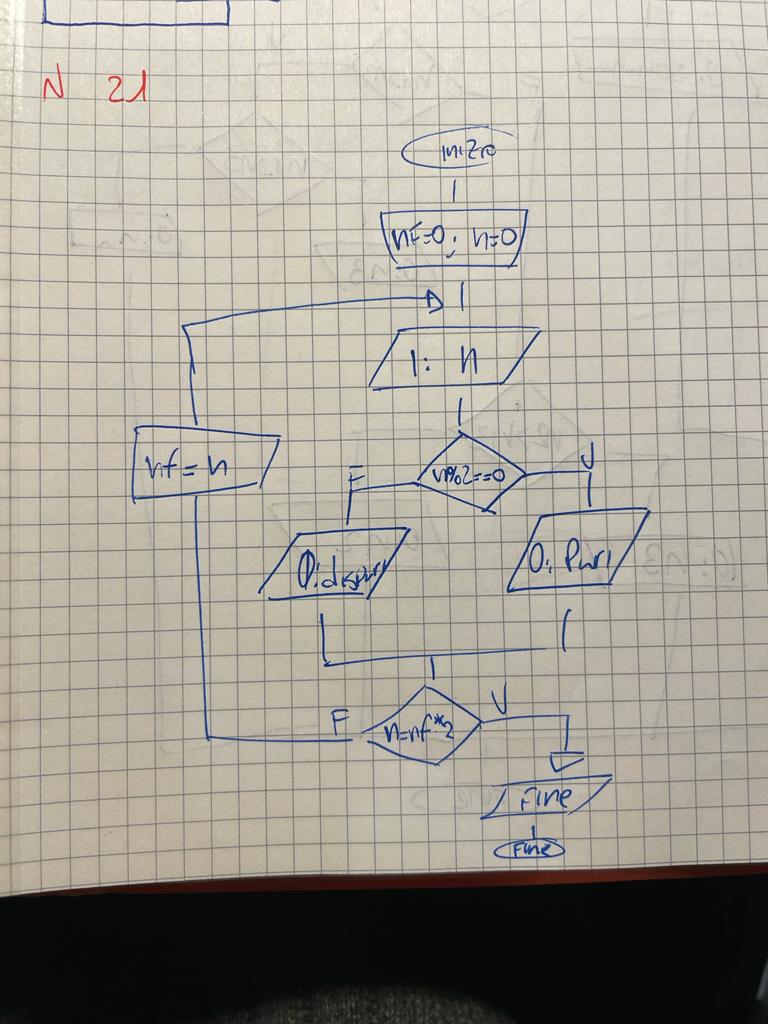 N 21
inizio
nf=0; n=0
I: n
n%2==0
F
V
nf=n
O: dispari
O: Pari
n=nf*2
F
V
Fine
Fine